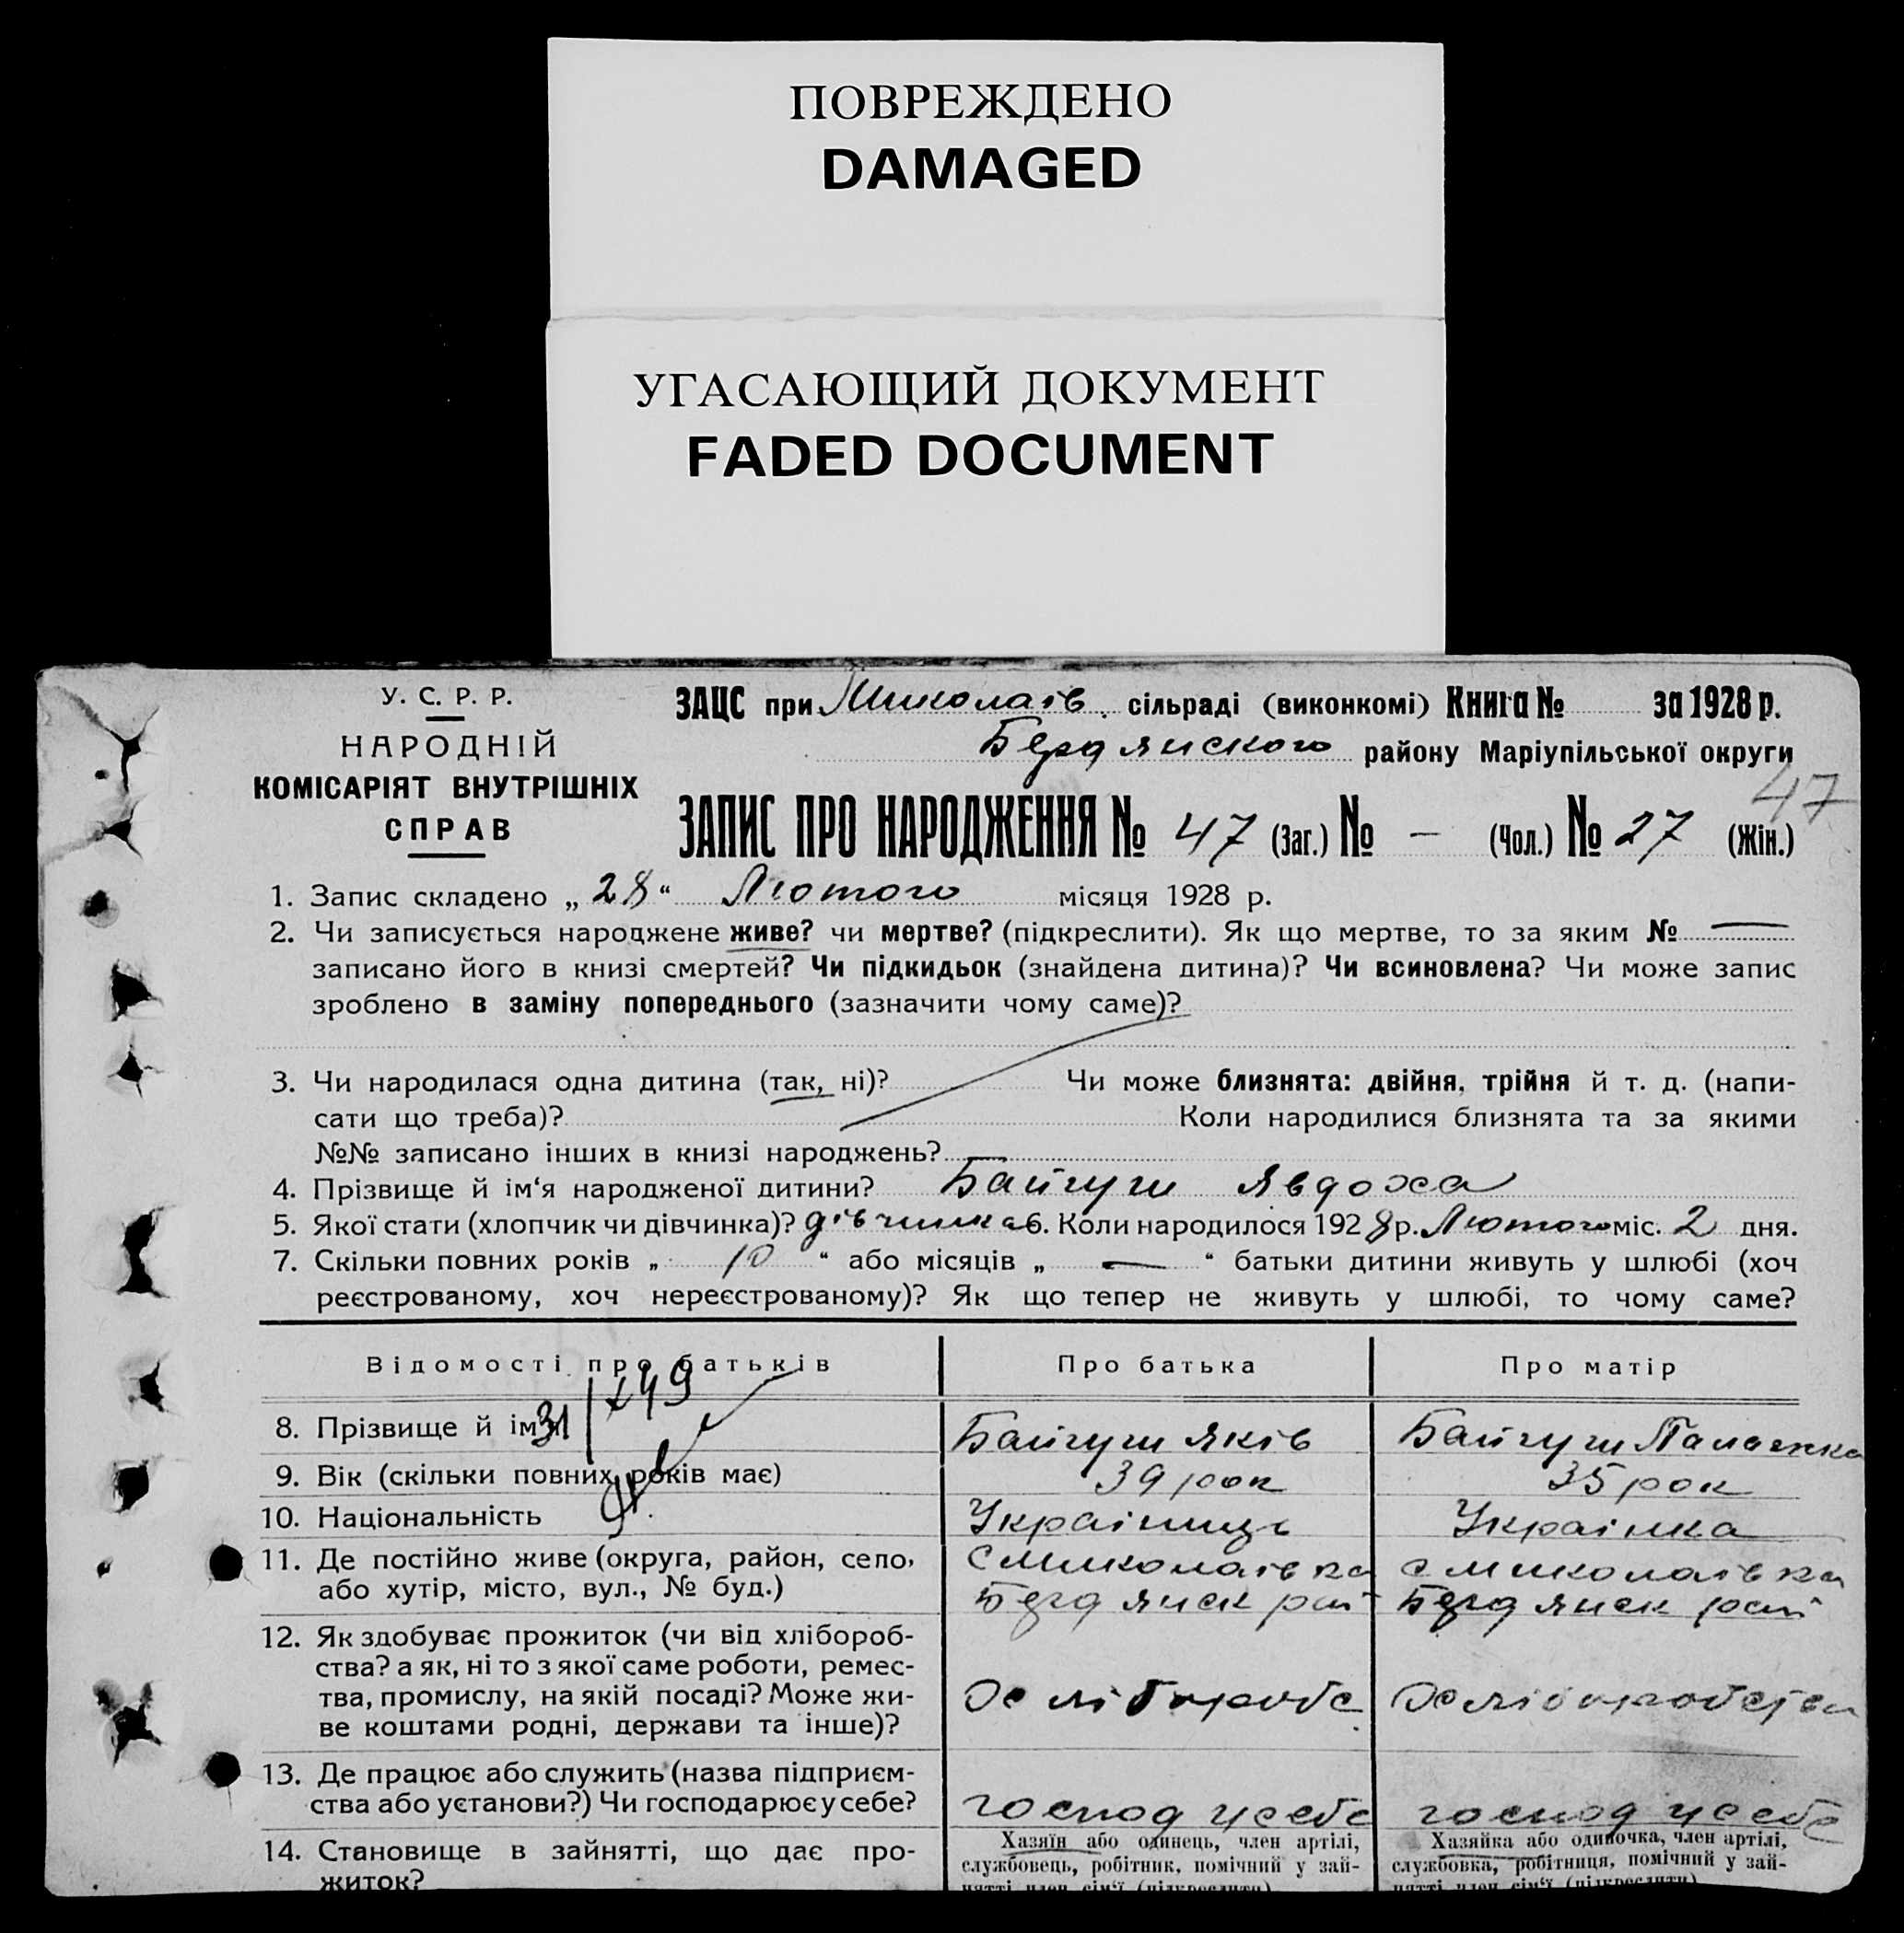 ПОВРЕЖДЕНО
DAMAGED
УГАСАЮЩИЙ ДОКУМЕНТ
FADED DOCUMENT
У. С. Р. Р.
НАРОДНІЙ
КОМІСАРІЯТ ВНУТРІШНІХ
СПРАВ
ЗАЦС при Миколаїв. сільраді (виконкомі) Книга № за 1928 р.
Бердянского району Маріупільської округи
47
ЗАПИС ПРО НАРОДЖЕННЯ № 47 (Заг.) № — (Чол.) № 27 (Жін.)
1. Запис складено „ 28 “ Лютого місяця 1928 р.
2. Чи записується народжене живе? чи мертве? (підкреслити). Як що мертве, то за яким № —
записано його в книзі смертей? Чи підкидьок (знайдена дитина)? Чи всиновлена? Чи може запис
зроблено в заміну попереднього (зазначити чому саме)?
3. Чи народилася одна дитина (так, ні)? Чи може близнята: двійня, трійня й т. д. (напи-
сати що треба)? Коли народилися близнята та за якими
№№ записано інших в книзі народжень?
4. Прізвище й ім‘я народженої дитини? Байгуш Явдоха
5. Якої стати (хлопчик чи дівчинка)? дівчинка 6. Коли народилося 1928 р. Лютого міс. 2 дня.
7. Скільки повних років „ 10 “ або місяців „ — “ батьки дитини живуть у шлюбі (хоч
реєстрованому, хоч нереєстрованому)? Як що тепер не живуть у шлюбі, то чому саме?
Відомості про батьків Про батька Про матір
8. Прізвище й ім‘я Байгуш Яків Байгуш Палажка
9. Вік (скільки повних років має) 39 рок 35 рок
10. Національність Українець Українка
11. Де постійно живе (округа, район, село, с Миколаівка с Миколаівка
або хутір, місто, вул., № буд.) Бердянск рай Бердянск рай
12. Як здобуває прожиток (чи від хлібороб-
ства? а як, ні то з якої саме роботи, ремес-
тва, промислу, на якій посаді? Може жи- Хліборобс Хліборобства
ве коштами родні, держави та інше)?
13. Де працює або служить (назва підприєм-
ства або установи?) Чи господарює у себе? господ у себе господ у себе
14. Становище в зайнятті, що дає про- Хазяїн або одинець, член артілі, Хазяйка або одиночка, член артілі,
житок? службовець, робітник, помічний у зай- службовка, робітниця, помічний у зай-
нятті член сім‘ї (підкреслити) нятті член сім‘ї (підкреслити)